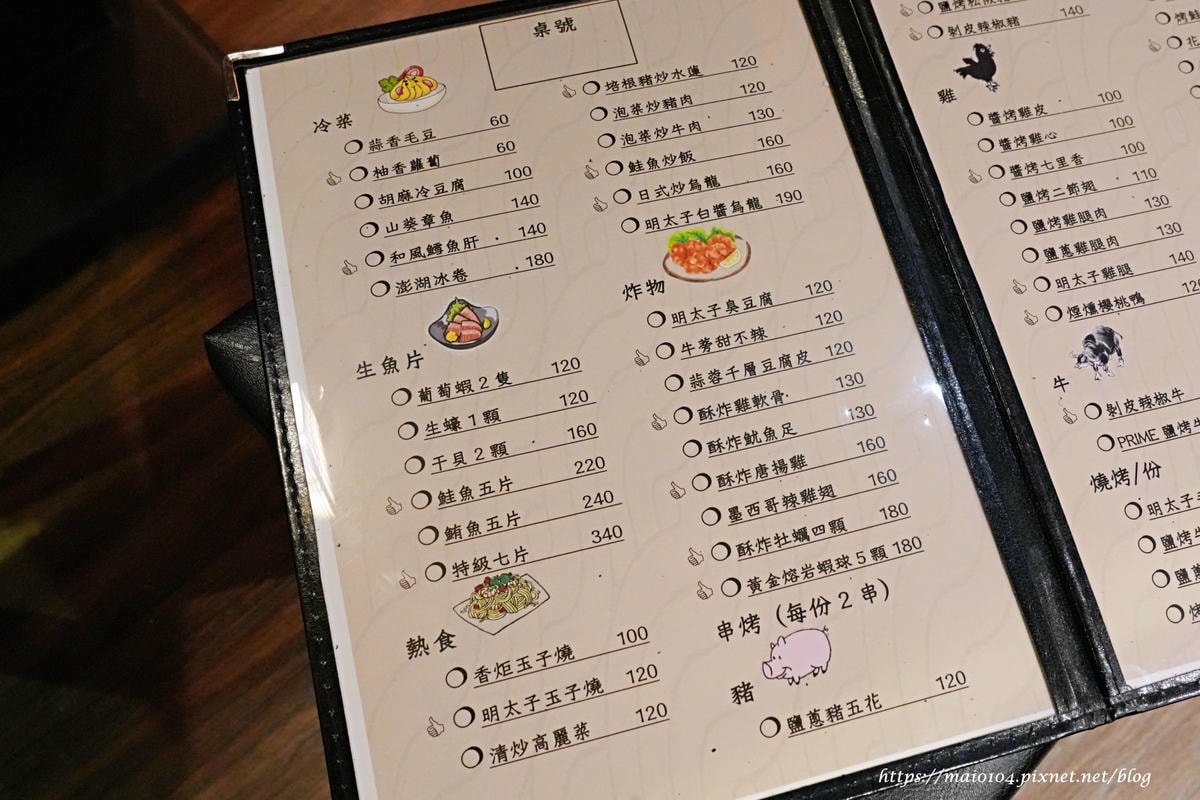 桌號
冷菜
蒜香毛豆 60
柚香蘿蔔 60
胡麻冷豆腐 100
山葵章魚 140
和風鱈魚肝 140
澎湖冰卷 180
生魚片
葡萄蝦2隻 120
生蠔1顆 120
干貝2顆 160
鮭魚五片 220
鮪魚五片 240
特級七片 340
熱食
香炬玉子燒 100
明太子玉子燒 120
清炒高麗菜 120
培根豬炒水蓮 120
泡菜炒豬肉 120
泡菜炒牛肉 130
鮭魚炒飯 160
日式炒烏龍 160
明太子白醬烏龍 190
炸物
明太子臭豆腐 120
牛蒡甜不辣 120
蒜蓉千層豆腐皮 120
酥炸雞軟骨 130
酥炸魷魚足 130
酥炸唐揚雞 160
墨西哥辣雞翅 160
酥炸牡蠣四顆 180
黃金熔岩蝦球5顆 180
串烤(每份2串)
豬
鹽蔥豬五花 120
剝皮辣椒豬 140
雞
醬烤雞皮 100
醬烤雞心 100
醬烤七里香 100
鹽烤二節翅 110
鹽烤雞腿肉 130
鹽蔥雞腿肉 130
明太子雞腿 140
煙燻櫻桃鴨 120
牛
剝皮辣椒牛
PRIME鹽烤牛
燒烤/份
明太子
鹽烤
https://maio104.pixnet.net/blog